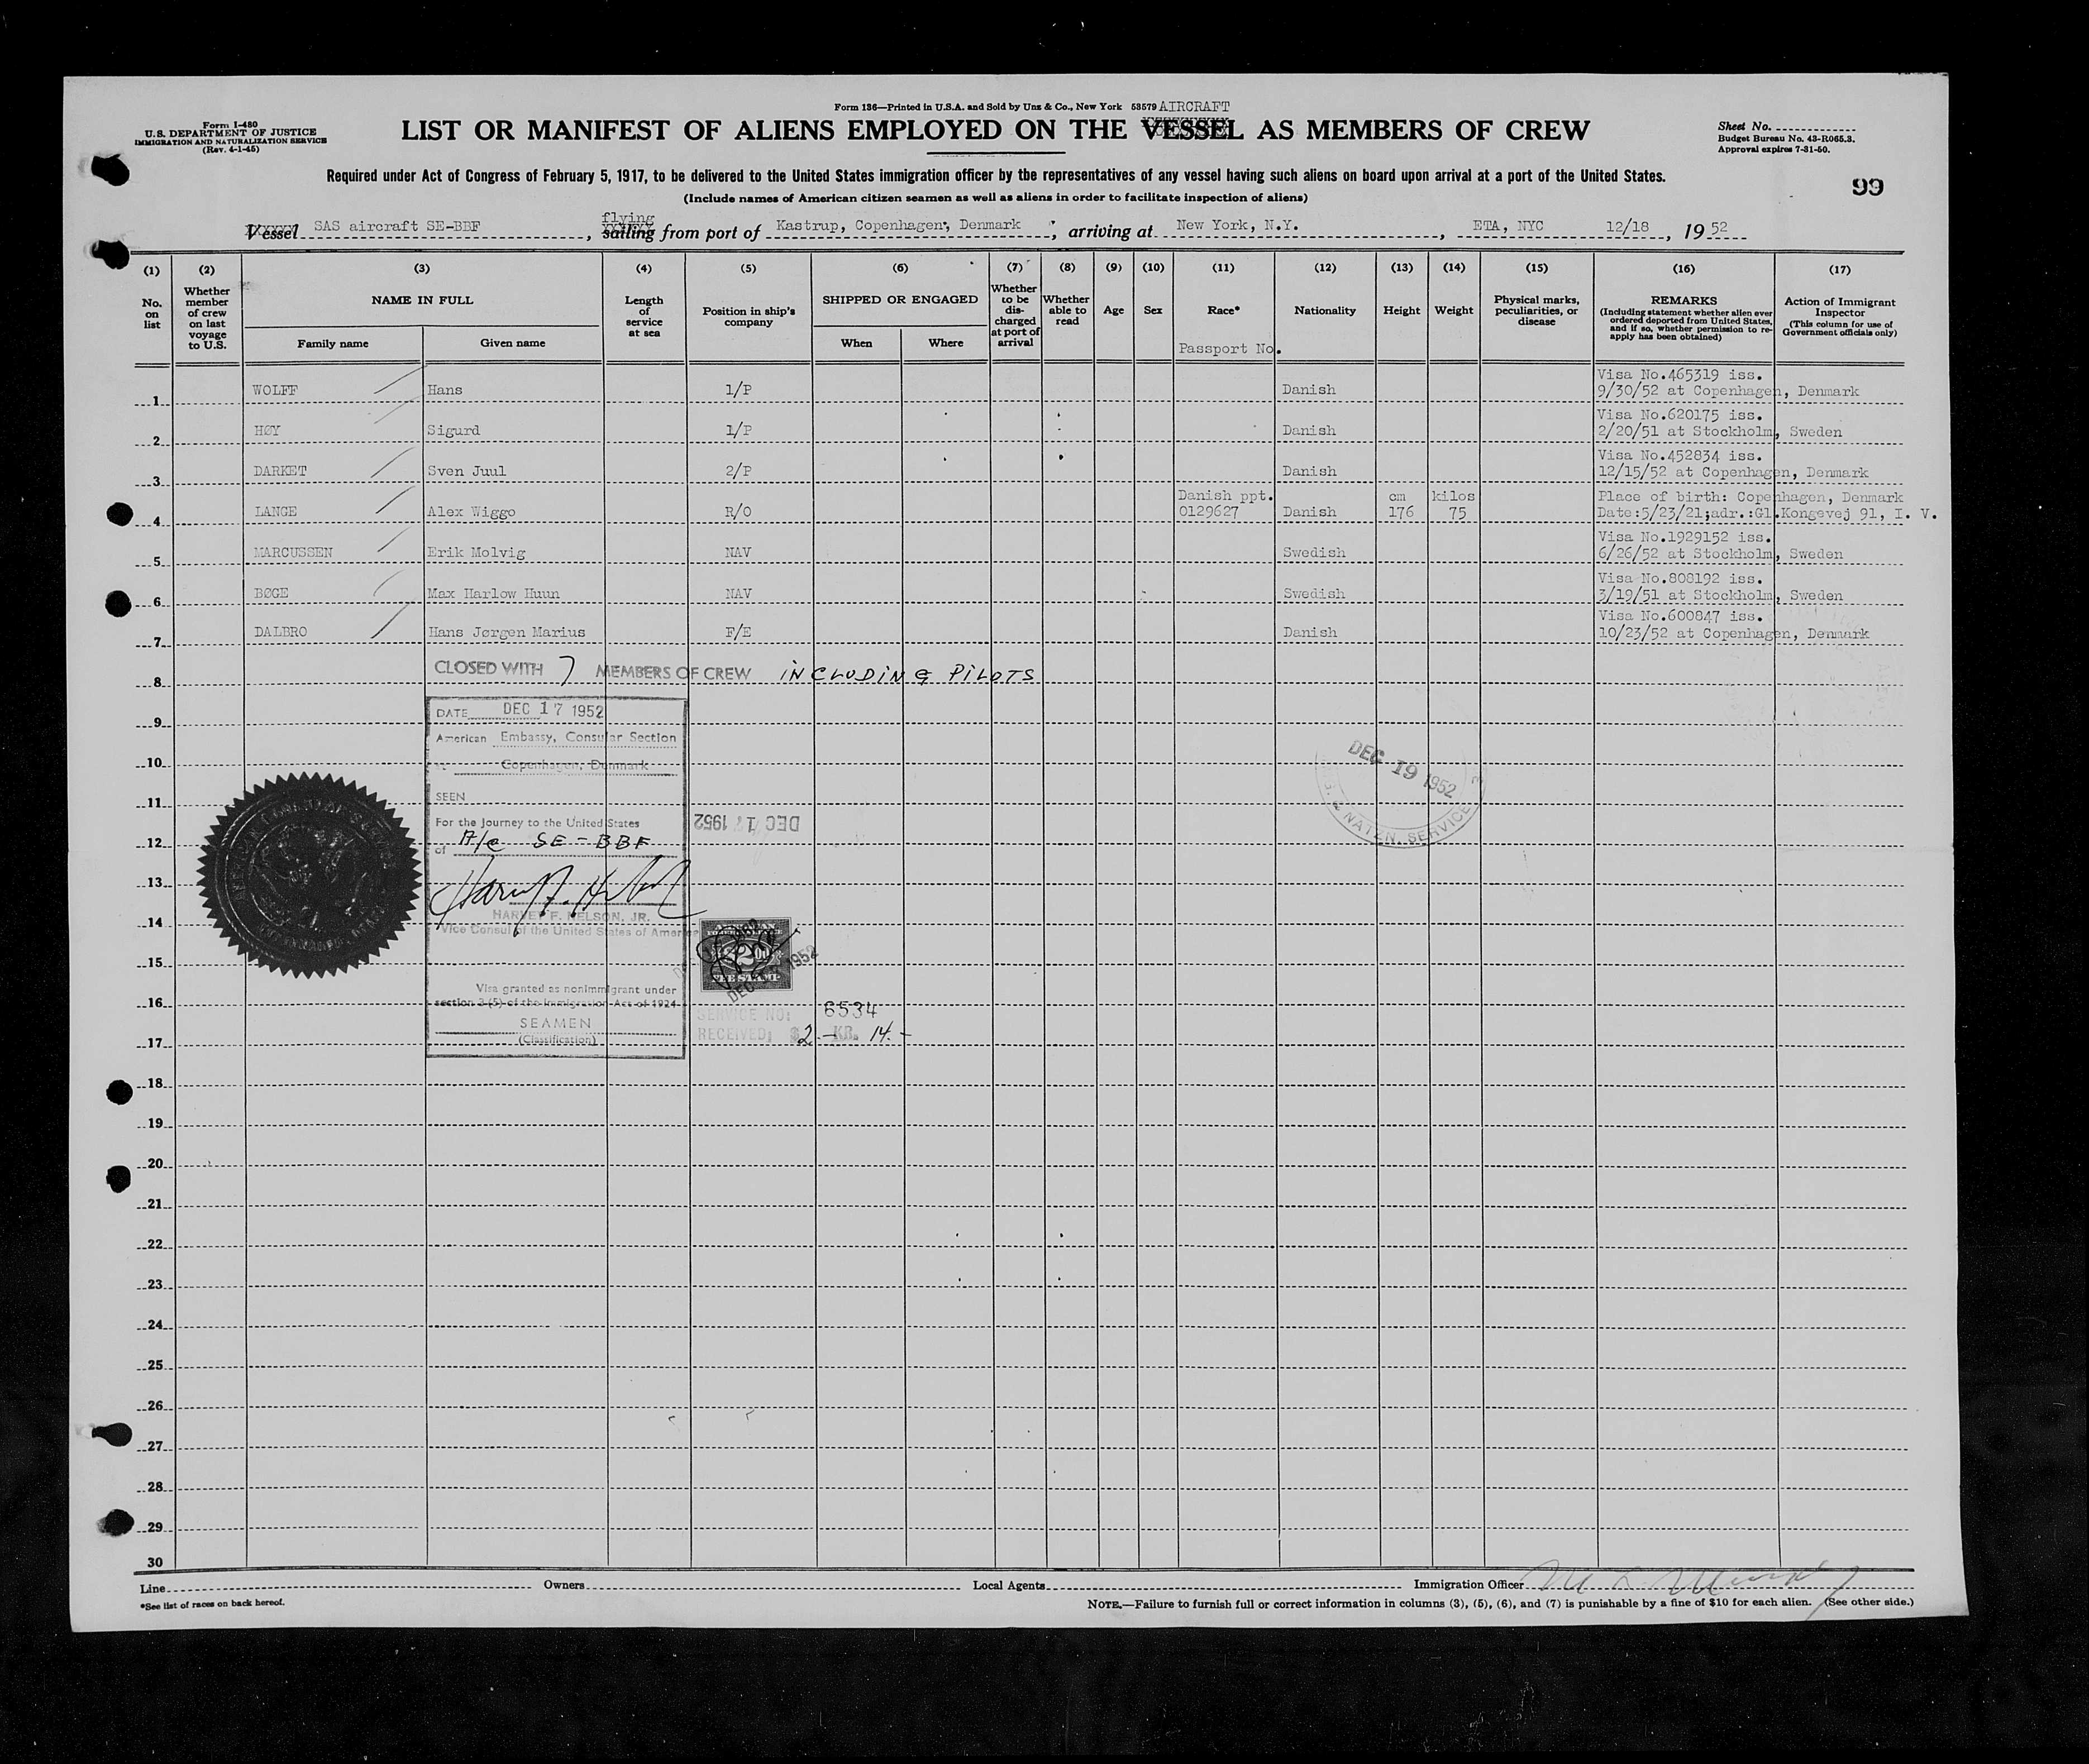 Form 136—Printed in U.S.A. and Sold by Unz & Co., New York 53579 AIRCRAFT
Form I-480
U.S. DEPARTMENT OF JUSTICE
IMMIGRATION AND NATURALIZATION SERVICE
(Rev. 4-1-45)
LIST OR MANIFEST OF ALIENS EMPLOYED ON THE VESSEL AS MEMBERS OF CREW
Sheet No.
Budget Bureau No. 43-R065.3.
Approval expires 7-31-50.
Required under Act of Congress of February 5, 1917, to be delivered to the United States immigration officer by the representatives of any vessel having such aliens on board upon arrival at a port of the United States.
(Include names of American citizen seamen as well as aliens in order to facilitate inspection of aliens)
99
flying
Vessel SAS aircraft SE-BBF, sailing from port of Kastrup, Copenhagen, Denmark, arriving at New York, N.Y., ETA, NYC 12/18, 1952
(1) (2) (3) (4) (5) (6) (7) (8) (9) (10) (11) (12) (13) (14) (15) (16) (17)
No. on list
Whether member of crew on last voyage to U.S.
NAME IN FULL
Family name
Given name
Length of service at sea
Position in ship's company
SHIPPED OR ENGAGED
When
Where
Whether to be discharged at port of arrival
Whether able to read
Age
Sex
Race*
Passport No.
Nationality
Height
Weight
Physical marks, peculiarities, or disease
REMARKS
(Including statement whether alien ever ordered deported from United States, and if so, whether permission to reapply has been obtained)
Action of Immigrant Inspector
(This column for use of Government officials only)
Visa No.465319 iss.
1 WOLFF Hans 1/P Danish 9/30/52 at Copenhagen, Denmark
Visa No.620175 iss.
2 HØY Sigurd 1/P Danish 2/20/51 at Stockholm, Sweden
Visa No.452834 iss.
3 DARKET Sven Juul 2/P Danish 12/15/52 at Copenhagen, Denmark
Danish ppt. cm kilos Place of birth: Copenhagen, Denmark
4 LANGE Alex Wiggo R/O 0129627 Danish 176 75 Date:5/23/21;adr.:Gl.Kongevej 91, I. V.
Visa No.1929152 iss.
5 MARCUSSEN Erik Molvig NAV Swedish 6/26/52 at Stockholm, Sweden
Visa No.808192 iss.
6 BØGE Max Harlow Huun NAV Swedish 3/19/51 at Stockholm, Sweden
Visa No.600847 iss.
7 DALBRO Hans Jørgen Marius F/E Danish 10/23/52 at Copenhagen, Denmark
8 CLOSED WITH 7 MEMBERS OF CREW INCLUDING PILOTS
9 DATE DEC 17 1952
American Embassy, Consular Section
10 Copenhagen, Denmark
DEC 19 1952
& NATZN. SERVICE
11 SEEN
For the Journey to the United States
DEC 17 1952
12 of A/c SE-BBF
13
HARVEY F. NELSON, JR.
14 Vice Consul of the United States of America
15
2.00
FEE STAMP
DEC 1952
Visa granted as nonimmigrant under
16 section 3 (5) of the Immigration Act of 1924
SERVICE NO: 6534
SEAMEN
RECEIVED: $2 - KR. 14.-
17 (Classification)
18
19
20
21
22
23
24
25
26
27
28
29
30
Line Owners Local Agents Immigration Officer
*See list of races on back hereof.
NOTE.—Failure to furnish full or correct information in columns (3), (5), (6), and (7) is punishable by a fine of $10 for each alien. (See other side.)